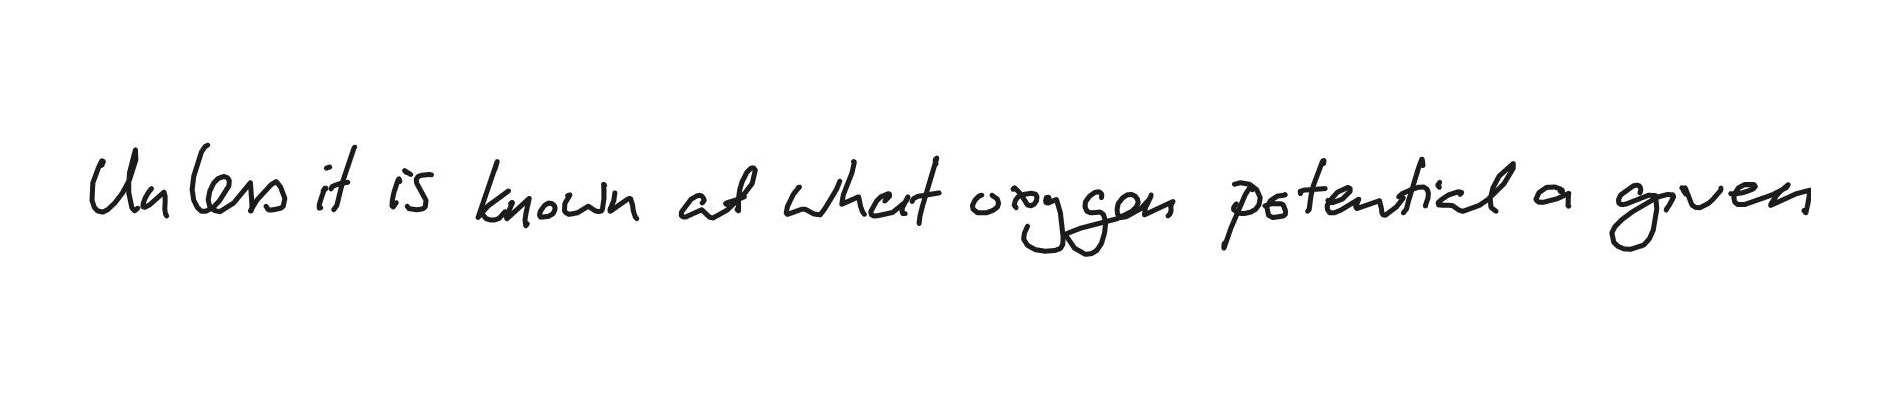 Unless it is known at what oxygen potential a given